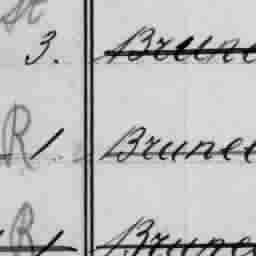 St
3. Brune
R 1 Brune
R 1 Brune